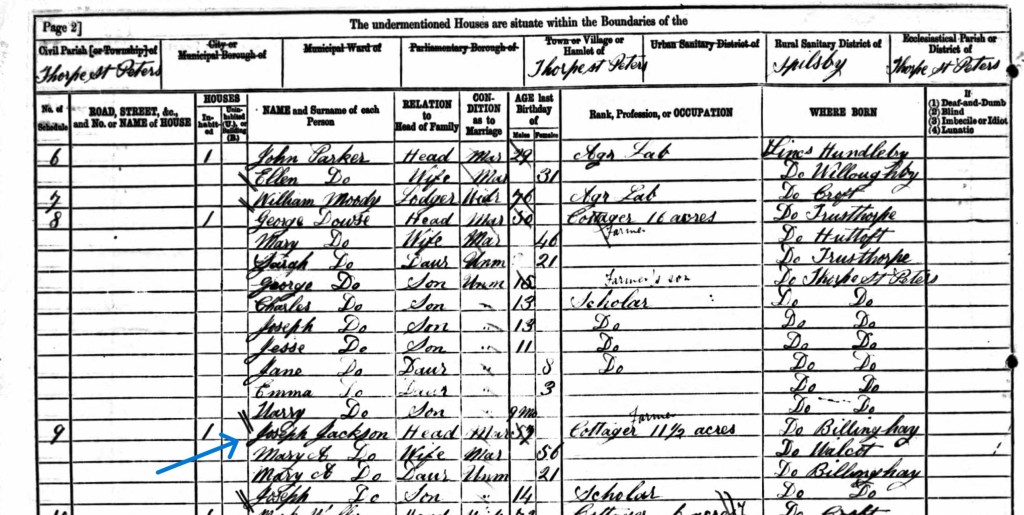 Page 2]
The undermentioned Houses are situate within the Boundaries of the
Civil Parish [or Township] of Thorpe St Peters
City or Municipal Borough of
Municipal Ward of
Parliamentary Borough of
Town or Village or Hamlet of Thorpe St Peters
Urban Sanitary District of
Rural Sanitary District of Spilsby
Ecclesiastical Parish or District of Thorpe St Peters
No. of Schedule
ROAD, STREET, &c., and No. or NAME of HOUSE
HOUSES
Inhabited
Uninhabited (U.), or Building (B.)
NAME and Surname of each Person
RELATION to Head of Family
CONDITION as to Marriage
AGE last Birthday of
Males Females
Rank, Profession, or OCCUPATION
WHERE BORN
If
(1) Deaf-and-Dumb
(2) Blind
(3) Imbecile or Idiot
(4) Lunatic
6 1 John Parker Head Mar 29 Agr Lab Lincs Hundleby
Ellen Do Wife Mar 31 Do Willoughby
7 William Moody Lodger Widr 76 Agr Lab Do Croft
8 1 George Dowse Head Mar 50 Cottager 16 acres Do Trusthorpe
Farmer
Mary Do Wife Mar 46 Do Huttoft
Sarah Do Daur Unm 21 Do Trusthorpe
George Do Son Unm Farmer's son Do Thorpe St Peters
Charles Do Son " 13 Scholar Do Do
Joseph Do Son " 13 Do Do Do
Jesse Do Son " 11 Do Do Do
Jane Do Daur " 8 Do Do Do
Emma Do Daur 3 Do Do
Harry Do Son 9 Mo Do Do
Farmer
9 1 Joseph Jackson Head Mar Cottager 11½ acres Do Billinghay
Mary A Do Wife Mar 56 Do Walcot
Mary A Do Daur Unm 21 Do Billinghay
Joseph Do Son 14 Scholar Do Do